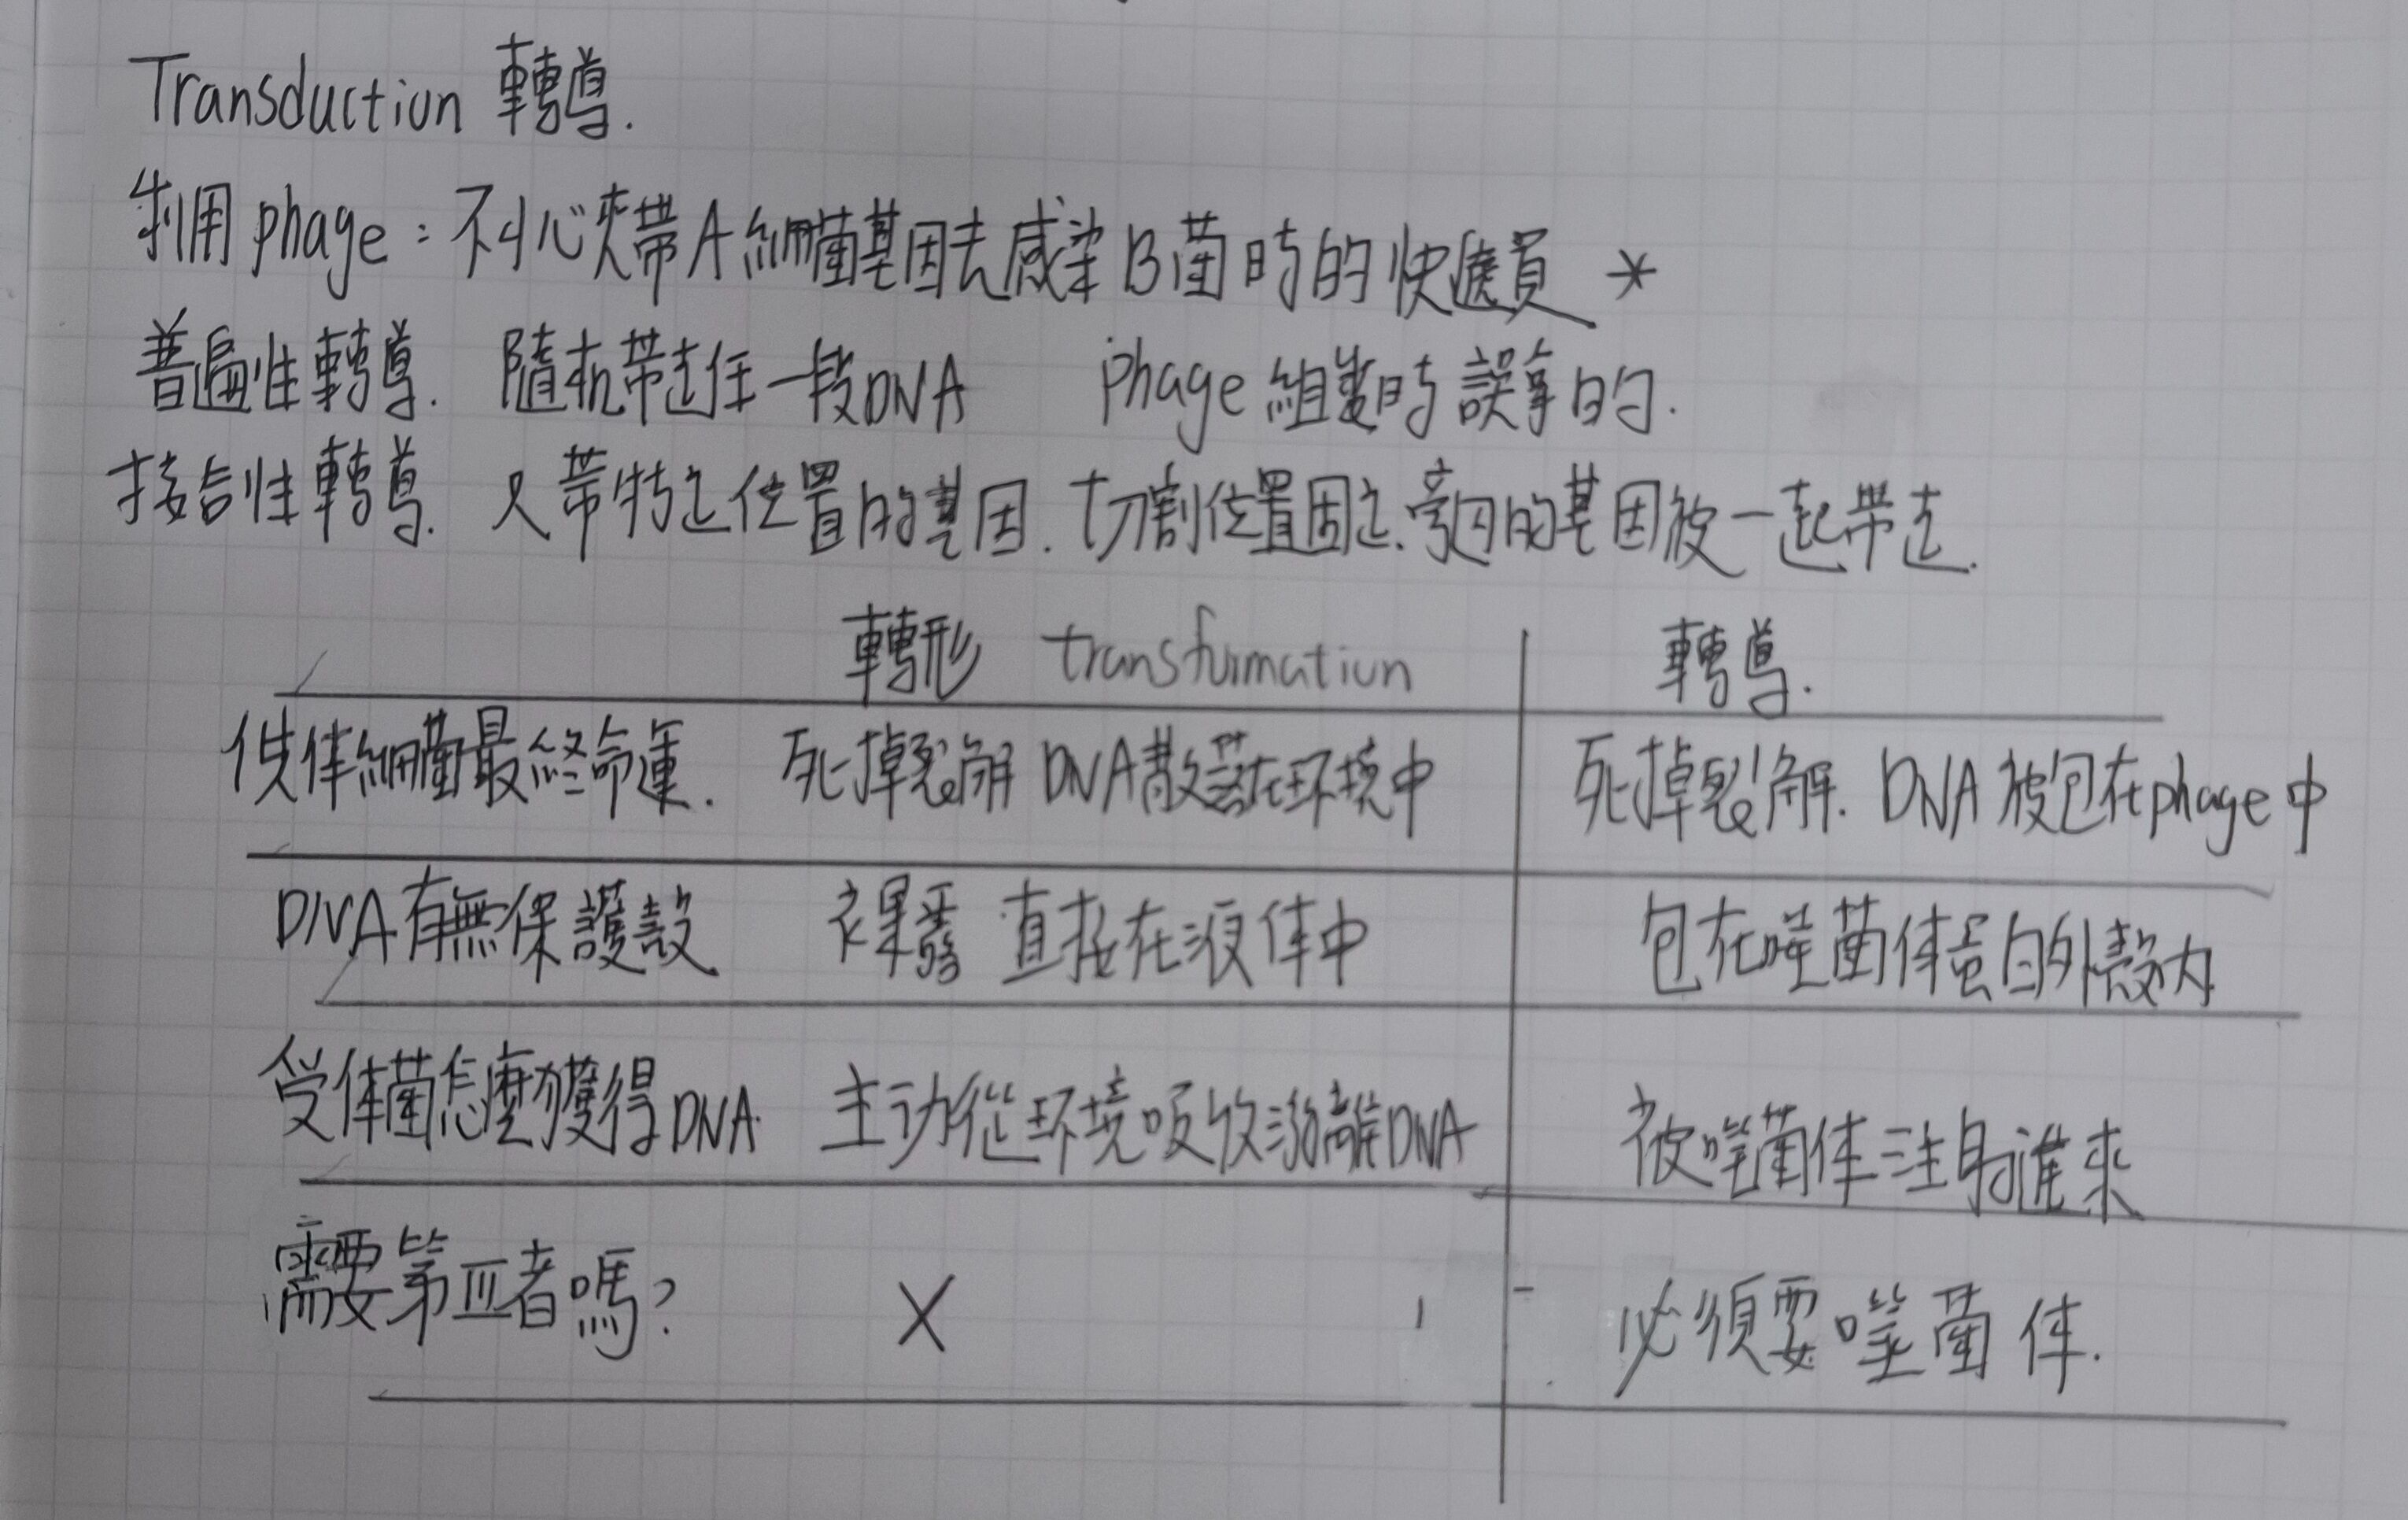 Transduction 轉導.
利用 phage：不小心夾帶A細菌基因去感染B菌時的快遞員 *
普遍性轉導. 隨机带走任一段DNA phage 組裝時誤拿的.
接合性轉導. 只带特定位置的基因. 切割位置固定. 旁边的基因被一起带走.
轉形 transformation 轉導.
供体細菌最終命運. 死掉裂解 DNA散落在环境中 死掉裂解. DNA被包在phage中
DNA有無保護殼 裸露 直接在液体中 包在噬菌体蛋白外殼內
受体菌怎麼獲得DNA 主动從环境吸收游離DNA 被噬菌体注射進來
需要第三者嗎? X 必須要噬菌体.